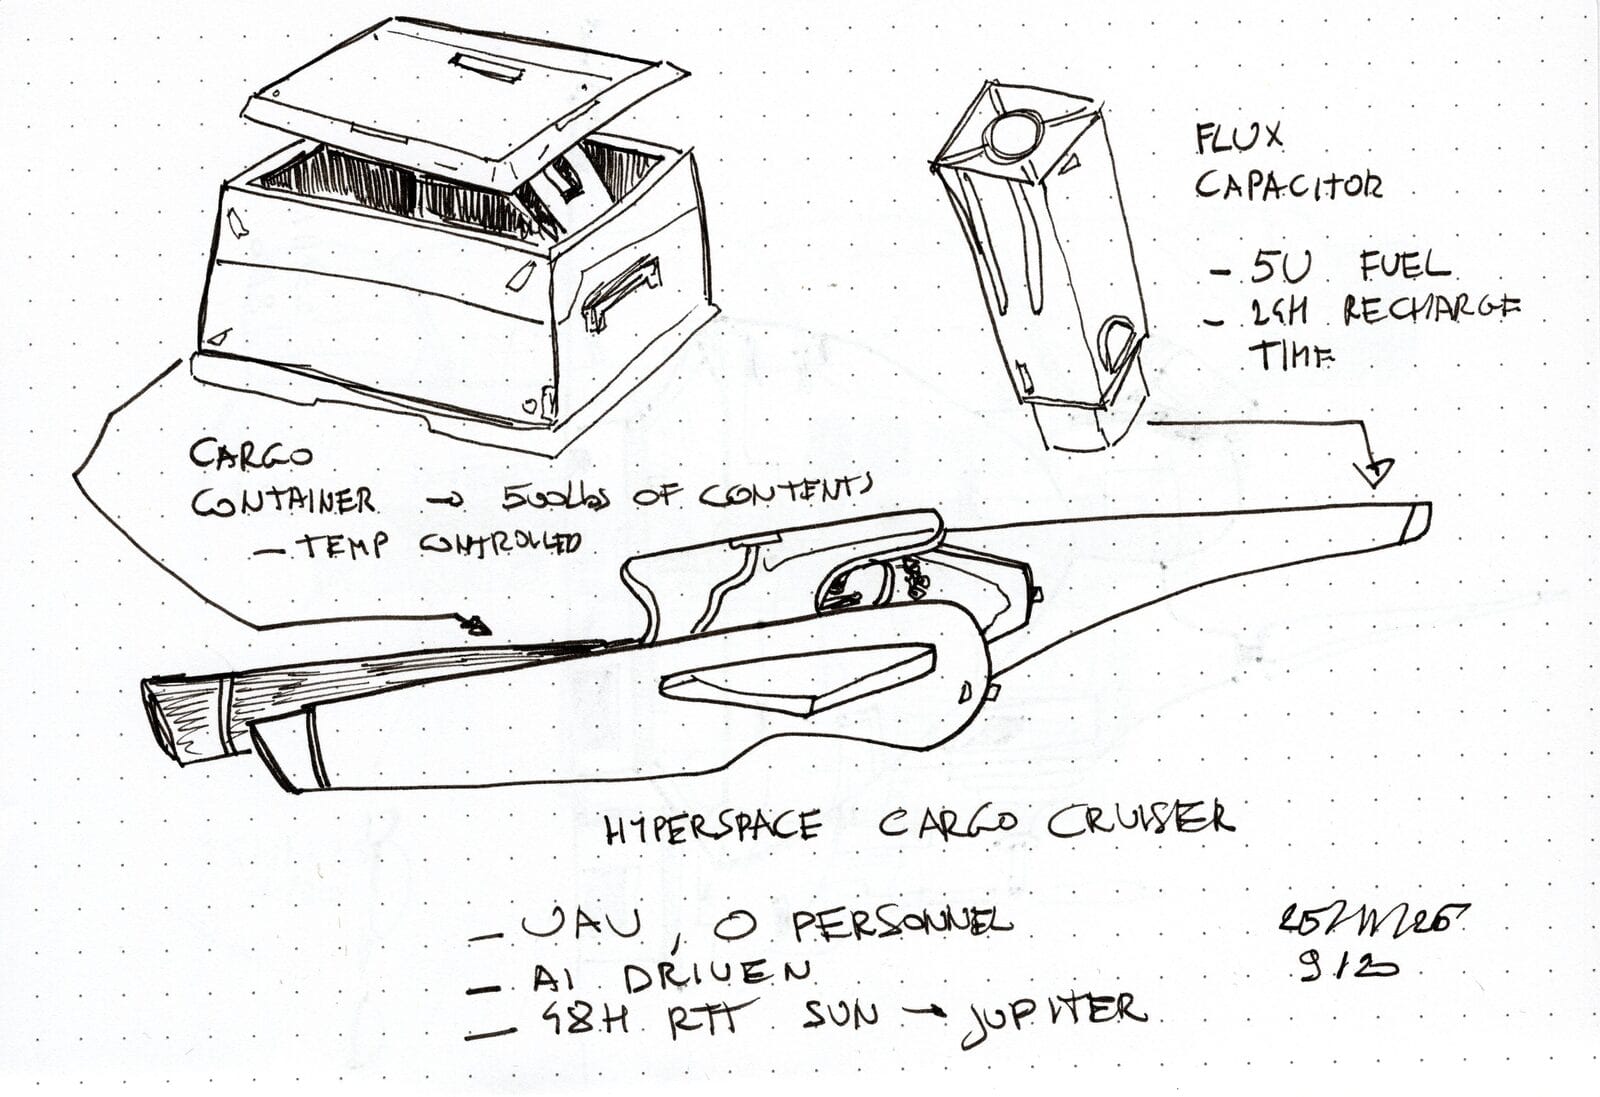 FLUX
CAPACITOR
- 5U FUEL
- 24H RECHARGE
TIME
CARGO
CONTAINER → 500lbs OF CONTENTS
- TEMP CONTROLLED
HYPERSPACE CARGO CRUISER
- UAV, 0 PERSONNEL
- AI DRIVEN
- 48H RTT SUN → JUPITER